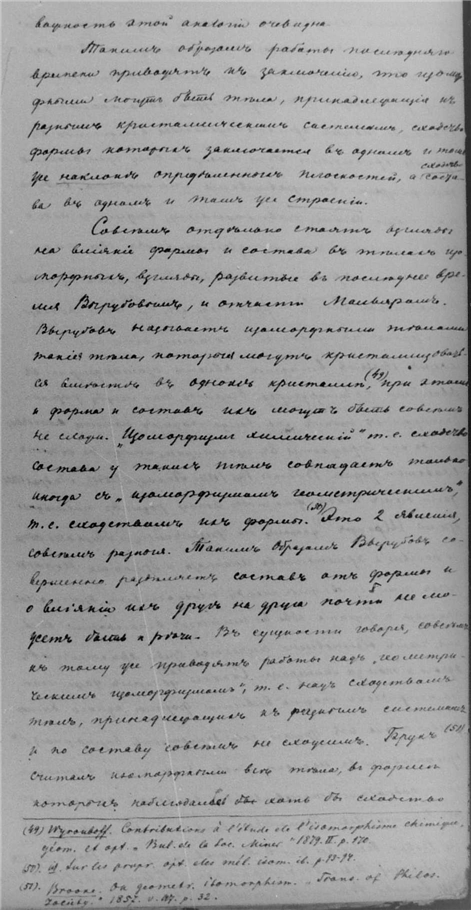 важность этой аналогіи очевидна
Такимъ образомъ работы послѣдняго
времени приводятъ къ заключенію, что изомор-
фными могутъ быть тѣла, принадлежащія къ
разнымъ кристаллическимъ системамъ, сходство
формы которыхъ заключается въ одномъ и томъ
же наклонѣ опредѣленныхъ плоскостей, а сходство соста-
ва въ одномъ и томъ же строеніи.
Совсѣмъ отдѣльно стоятъ взгляды
на вліяніе формы и состава въ тѣлахъ изо-
морфныхъ, взгляды, развитые въ послѣднее вре-
мя Вырубовымъ, и отчасти Мальяромъ.
Вырубовъ называетъ изоморфными тѣлами
такія тѣла, которыя могутъ кристаллизовать-
ся вмѣстѣ въ одномъ кристаллѣ, (49) при этомъ
и форма и составъ ихъ могутъ быть совсѣмъ
не сходны. "Изоморфизмъ химическій" т. е. сходство
состава у такихъ тѣлъ совпадаетъ только
иногда съ "изоморфизмомъ геометрическимъ",
т. е. сходствомъ ихъ формы. (50) Это 2 явленія,
совсѣмъ разныя. Такимъ образомъ Вырубовъ со-
вершенно раздѣляетъ составъ отъ формы и
о вліяніи ихъ другъ на друга почти не мо-
жетъ быть и рѣчи. Въ сущности говоря, совсѣмъ
къ тому же приводятъ работы надъ "геометри-
ческимъ изоморфизмомъ", т. е. надъ сходствомъ
тѣлъ, принадлежащихъ къ разнымъ системамъ
и по составу совсѣмъ не сходнымъ. Брукъ (51)
считалъ изоморфными всѣ тѣла, въ формѣ
которыхъ наблюдалось бы хоть бы сходство
(49) Wyrouboff. Contributions à l'étude de l'isomorphisme chimique,
géom. et opt. "Bul. de la Soc. Miner." 1879. II. p. 170.
(50) id Sur les propr. opt. des mél. isom. ib. p. 93-97.
(51) Brooke. On geometr. isomorphism. "Trans. of Philos.
Society." 1857. v. 147. p. 32.